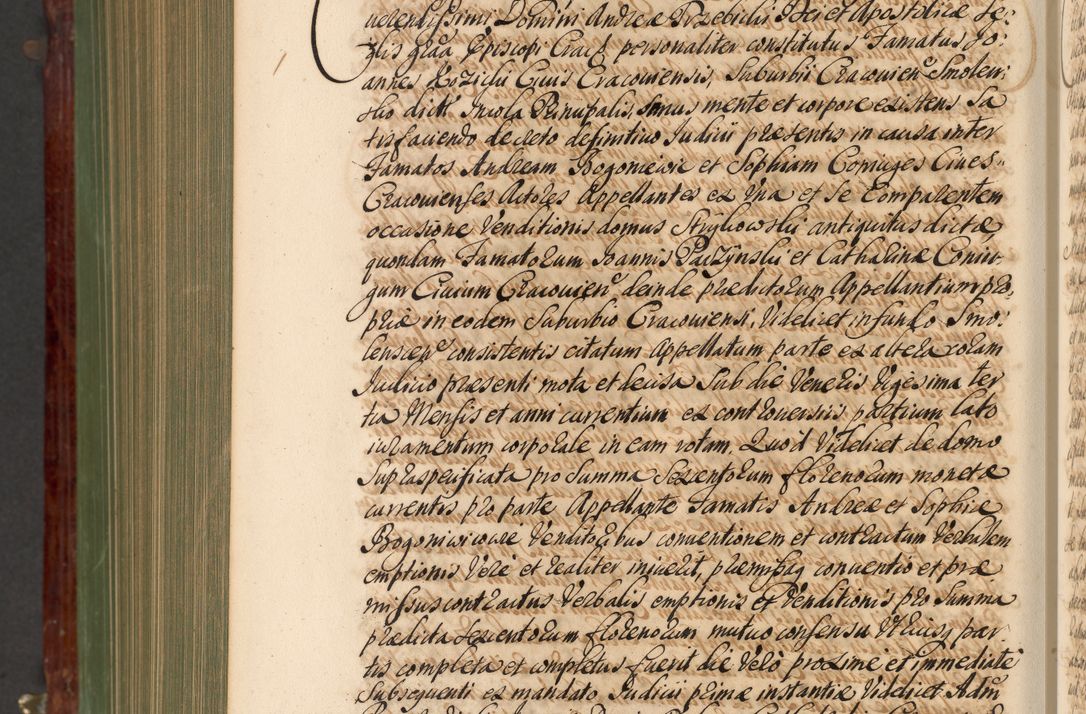 verendissimi Domini Andreæ Trzebicki Dei et Apostolicæ Se:
dis gr̃aa Episcopi Crac̃ personaliter constitutus Famatus Jo
annes Civis Cracoviensis, Suburbii Cracovien̄ Smoleń
sko dicti Incola Principalis, sanus mente et corpore existens Sa
tisfaciendo decreto definitivo Judicii præsentis in causa inter
Famatos Andream Bogoniewic et Sophiam Coniuges Cives
Cracovienses Actores Appellantes ex una et se Comparentem
occasione Venditionis domus Stryikowski antiquitus dictæ
quondam Famatorum Joannis Paczynski et Catharinæ Coniu
gum Civium Cracovien̄ deinde prædictorum Appellantium pro
priæ in eodem Suburbio Cracoviensi, Videlicet in fundo Smo:
lenscen̄ consistentis citatum Appellatum parte ex altera coram
Judicio præsenti mota et decisa Sub die Veneris Vigesima ter
tia Mensis et anni currentium ex controversiis partium lato
iuramentum corporale in eam rotam. Quod Videlicet de domo
Supraspecificata pro Summa Sexentorum florenorum monetæ
currentis pro parte Appellante Famatis Andreæ et Sophiæ
Bogoniewicowie Venditoribus conventionem et contractum Verbalem
emptionis Vere et realiter inierit, præmissaq conventio et præ
missus contractus Verbalis emptionis et Venditionis pro Summa
prædicta Sexentorum florenorum mutuo consensu Utriusq par
tis completa et completus fuerit die Verò proxime et immediatè
Subsequenti ex mandato Judicii primæ instantiæ Videlicet Adm̃